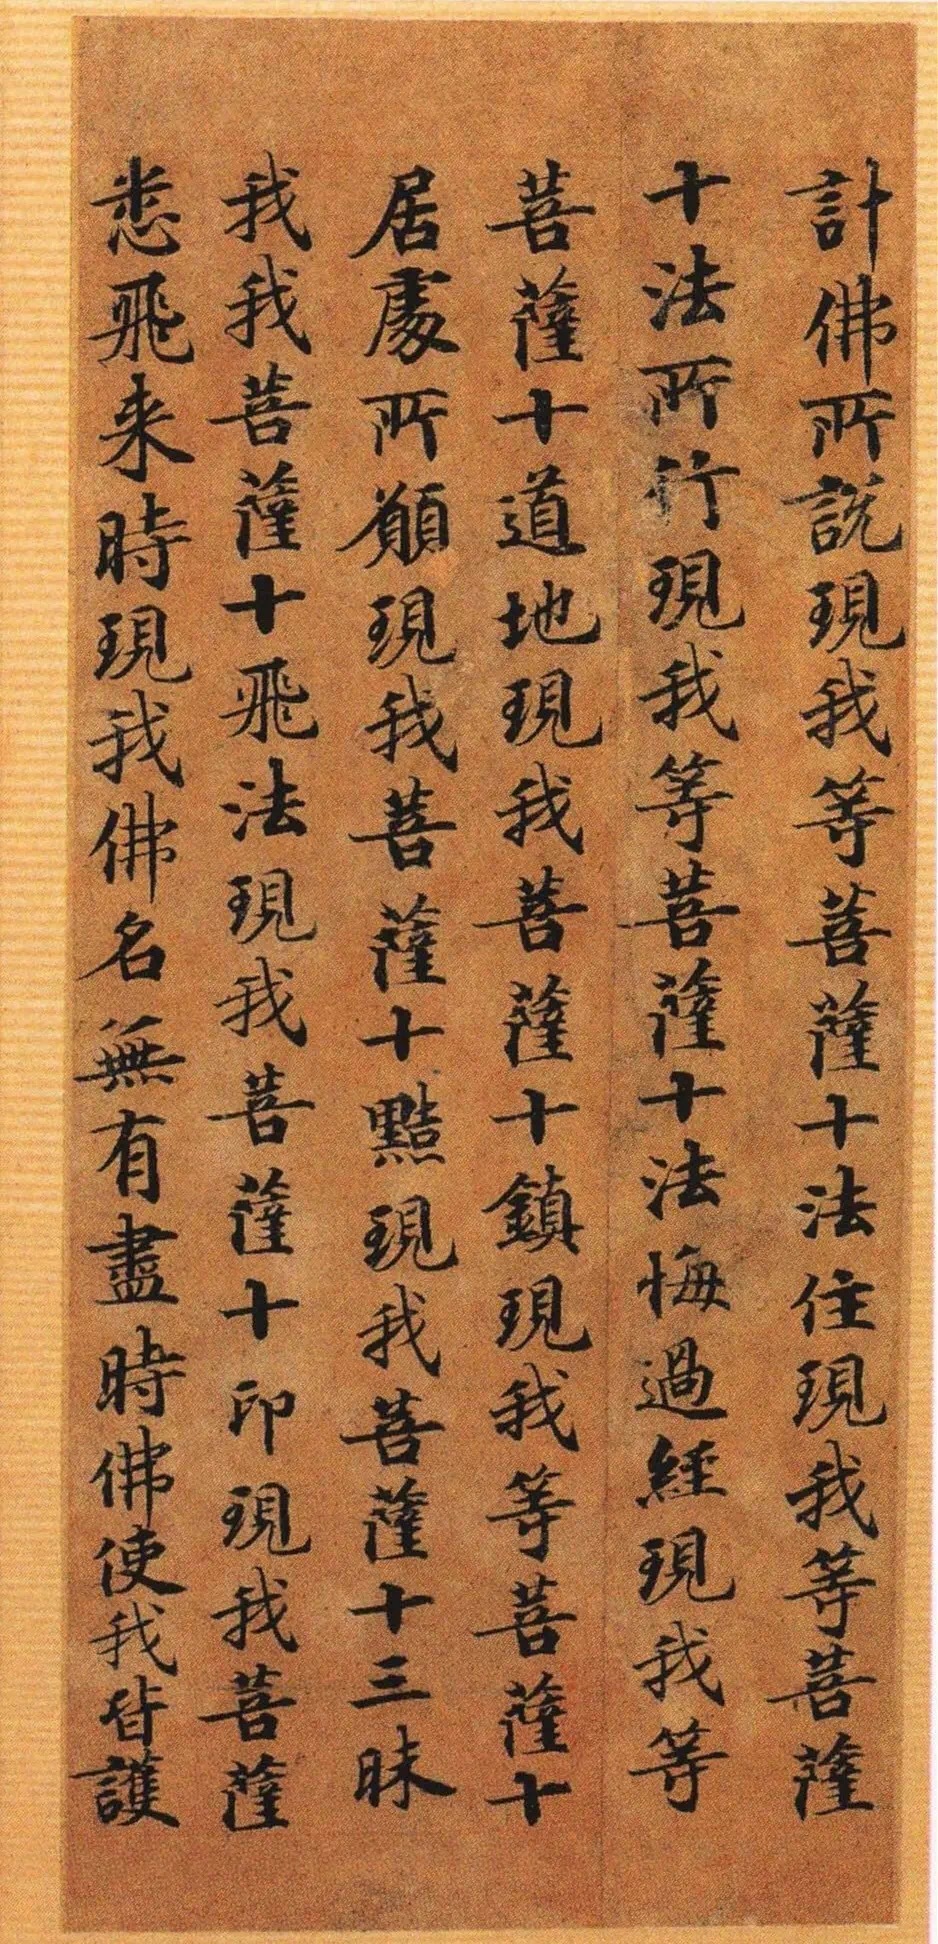 計佛所說現我等菩薩十法住現我等菩薩
十法所行現我等菩薩十法悔過經現我等
菩薩十道地現我菩薩十鎮現我等菩薩十
居處所願現我菩薩十黠現我菩薩十三昧
我我菩薩十飛法現我菩薩十印現我菩薩
悉飛来時現我佛名無有盡時佛使我皆護